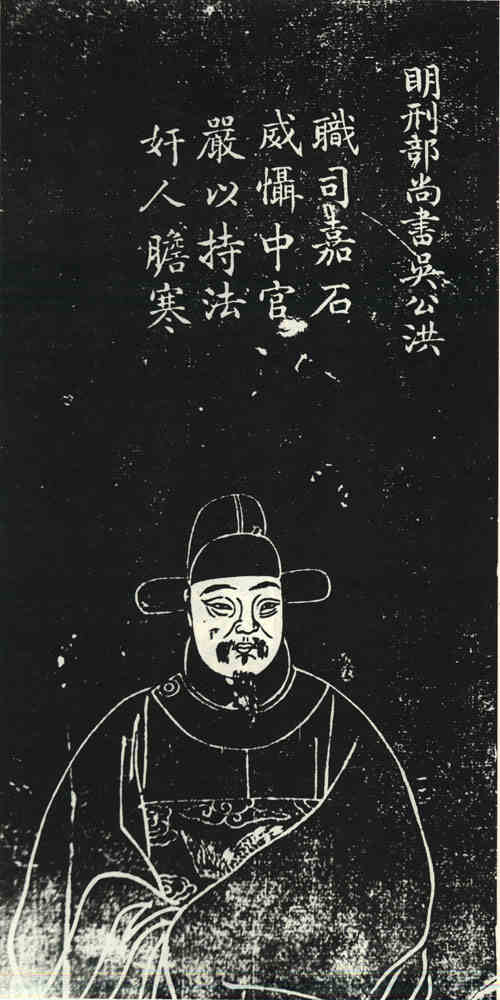 明刑部尚書吳公洪
職司嘉石
威懾中官
嚴以持法
奸人膽寒